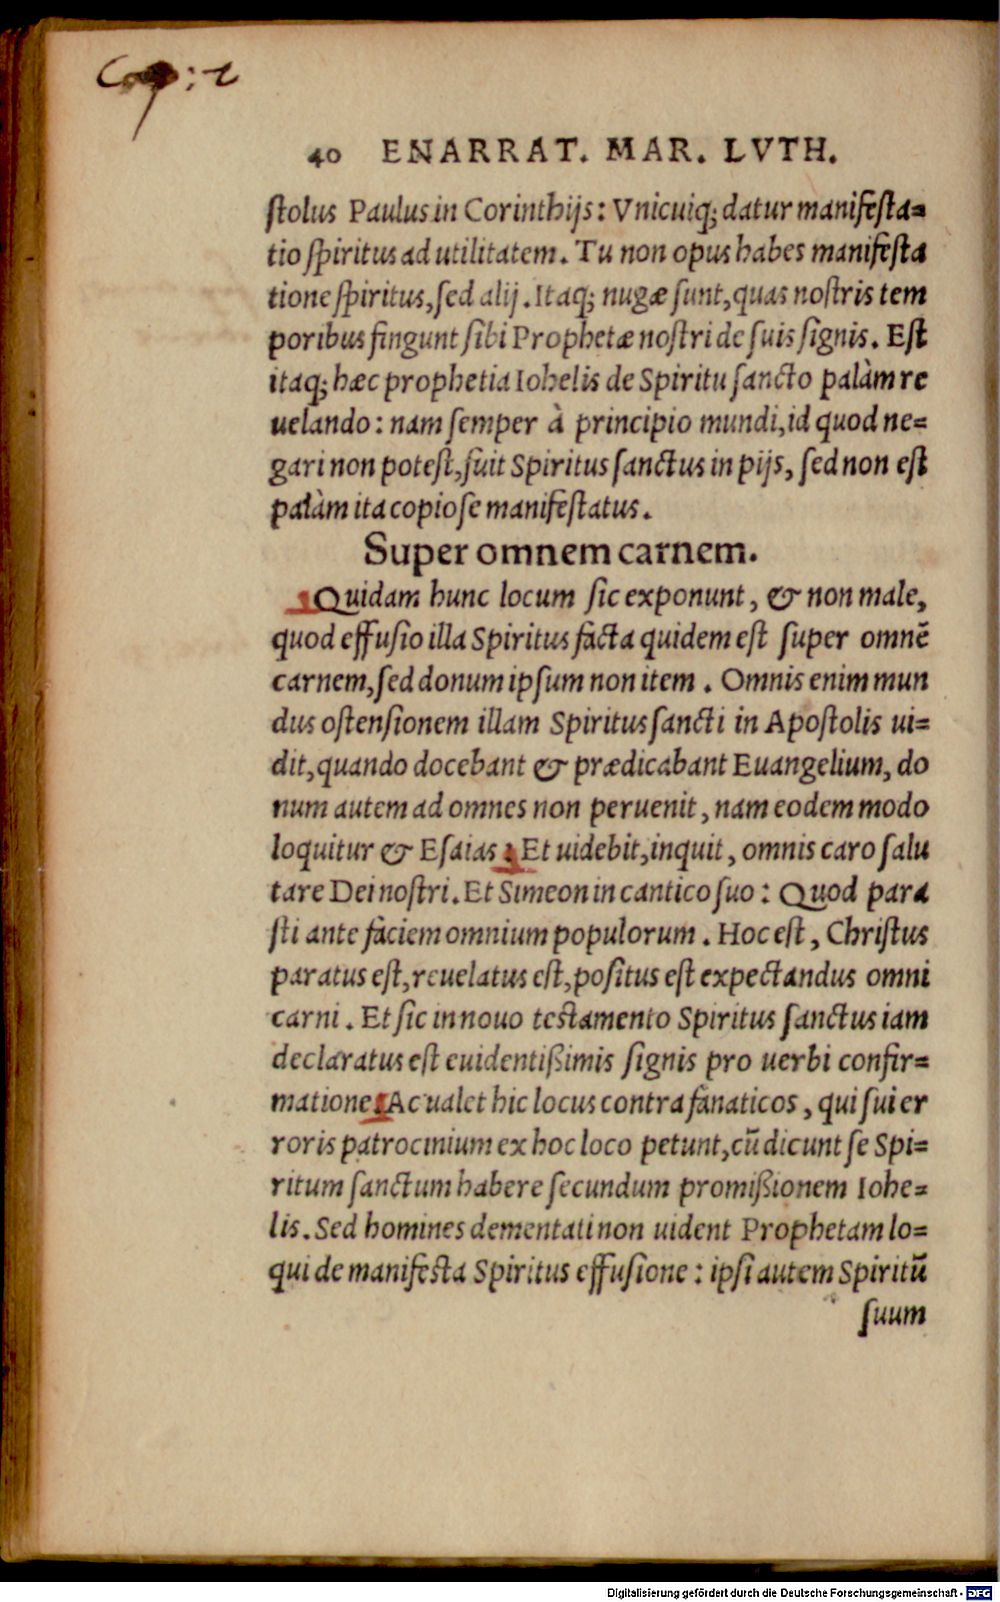 Cap: 2
40 ENARRAT. MAR. LVTH.
ſtolus Paulus in Corinthijs: Vnicuiq; datur manifeſta=
tio ſpiritus ad utilitatem. Tu non opus habes manifeſta
tione ſpiritus, ſed alij. Itaq; nugæ ſunt, quas noſtris tem
poribus fingunt ſibi Prophetæ noſtri de ſuis ſignis. Eſt
itaq; hæc prophetia Iohelis de Spiritu ſancto palàm re
uelando: nam ſemper à principio mundi, id quod ne=
gari non poteſt, fuit Spiritus ſanctus in pijs, ſed non eſt
palàm ita copioſe manifeſtatus.
Super omnem carnem.
Quidam hunc locum ſic exponunt, & non male,
quod effuſio illa Spiritus facta quidem eſt ſuper omnē
carnem, ſed donum ipſum non item. Omnis enim mun
dus oſtenſionem illam Spiritus ſancti in Apoſtolis ui=
dit, quando docebant & prædicabant Euangelium, do
num autem ad omnes non peruenit, nam eodem modo
loquitur & Eſaias: Et uidebit, inquit, omnis caro ſalu
tare Dei noſtri. Et Simeon in cantico ſuo: Quod para
ſti ante faciem omnium populorum. Hoc eſt, Chriſtus
paratus eſt, reuelatus eſt, poſitus eſt expectandus omni
carni. Et ſic in nouo teſtamento Spiritus ſanctus iam
declaratus eſt euidentißimis ſignis pro uerbi confir=
matione. Ac ualet hic locus contra fanaticos, qui ſui er
roris patrocinium ex hoc loco petunt, cū dicunt ſe Spi=
ritum ſanctum habere ſecundum promißionem Iohe=
lis. Sed homines dementati non uident Prophetam lo=
qui de manifeſta Spiritus effuſione: ipſi autem Spiritū
ſuum
Digitalisierung gefördert durch die Deutsche Forschungsgemeinschaft - DFG